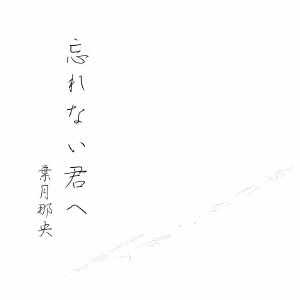 忘れない君へ
葉月那央